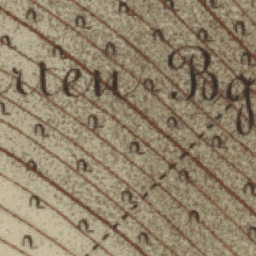 rten Bg